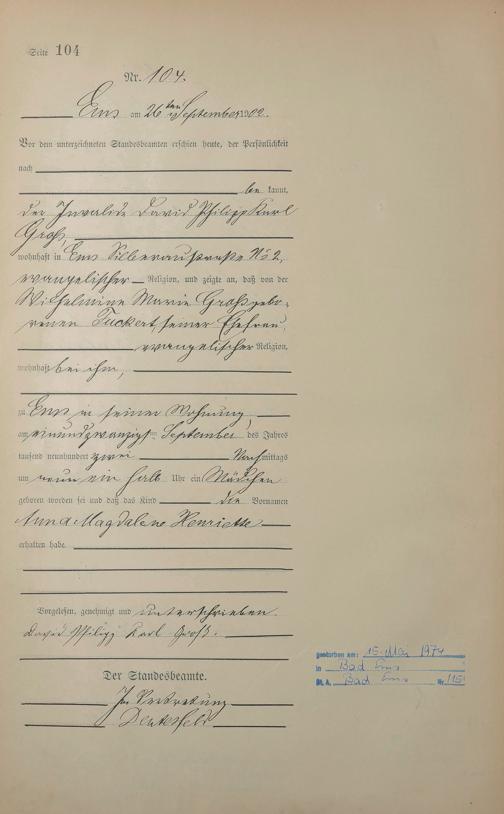 Seite 104
Nr. 104.
Ems am 26ten September 1902.
Vor dem unterzeichneten Standesbeamten erschien heute, der Persönlichkeit
nach
be kannt,
der Invalide David Philipp Karl
Groß,
wohnhaft in Ems Silberaustraße No 2,
evangelischer Religion, und zeigte an, daß von der
Wilhelmine Marie Groß gebo-
renen Tuckert, seiner Ehefrau,
evangelischer Religion,
wohnhaft bei ihm,
zu Ems in seiner Wohnung
am einundzwanzigten September des Jahres
tausend neunhundert zwei Nachmittags
um neun ein halb Uhr ein Mädchen
geboren worden sei und daß das Kind die Vornamen
Anna Magdalene Henriette
erhalten habe.
Vorgelesen, genehmigt und unterschrieben.
David Philipp Karl Groß.
Der Standesbeamte.
In Vertretung
gestorben am: 15. Mai 1974
in Bad Ems
St. A. Bad Ems Nr.